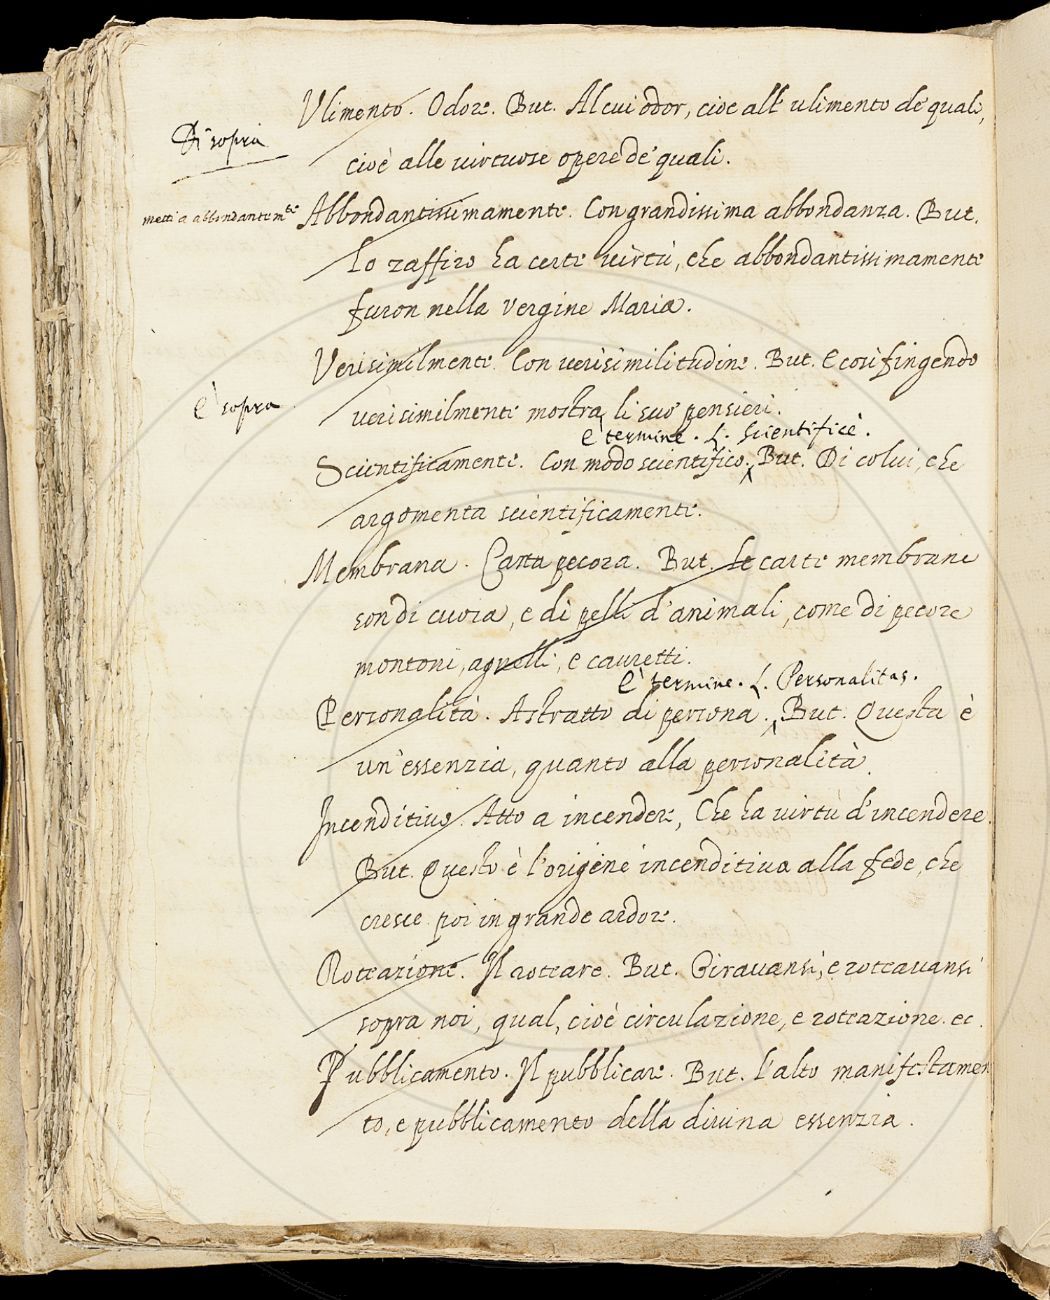 Vlimento. Odore. But. Al cui odor, cioè all'ulimento de' quali,
Di sopra
cioè alle virtuose opere de' quali.
metti a abbondantemte
Abbondantissimamente. Con grandissima abbondanza. But.
Lo zaffiro ha certe virtù, che abbondantissimamente
furon nella Vergine Maria.
Verisimilmente. Con verisimilitudine. But. E così fingendo
è sopra
verisimilmente mostra li suo' pensieri.
è termine. L. scientificè.
Scientificamente. Con modo scientifico. But. Di colui, che
argomenta scientificamente.
Membrana. Carta pecora. But. Le carte membrane
son di cuora, e di pelli d'animali, come di pecore
montoni, agnelli, e cavretti.
è termine. L. Personalitas.
Personalità. Astratto di persona. But. Questa è
un'essenzia, quanto alla personalità.
Incenditivo. Atto a incendere, Che ha virtù d'incendere.
But. Questo è l'origine incenditiva alla fede, che
cresce poi in grande ardore.
Roteazione. Il roteare. But. Giravansi, e roteavansi
sopra noi, qual, cioè circulazione, e roteazione. ec.
Pubblicamento. Il pubblicare. But. L'alto manifestamen
to, e pubblicamento della divina essenzia.